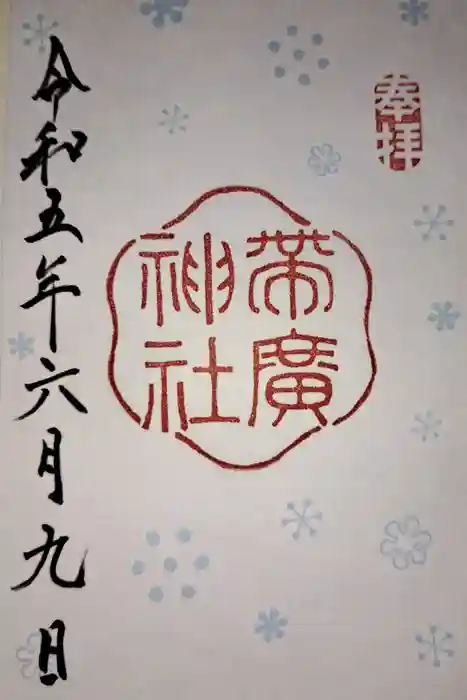 奉拝
帯廣
神社
令和五年六月九日